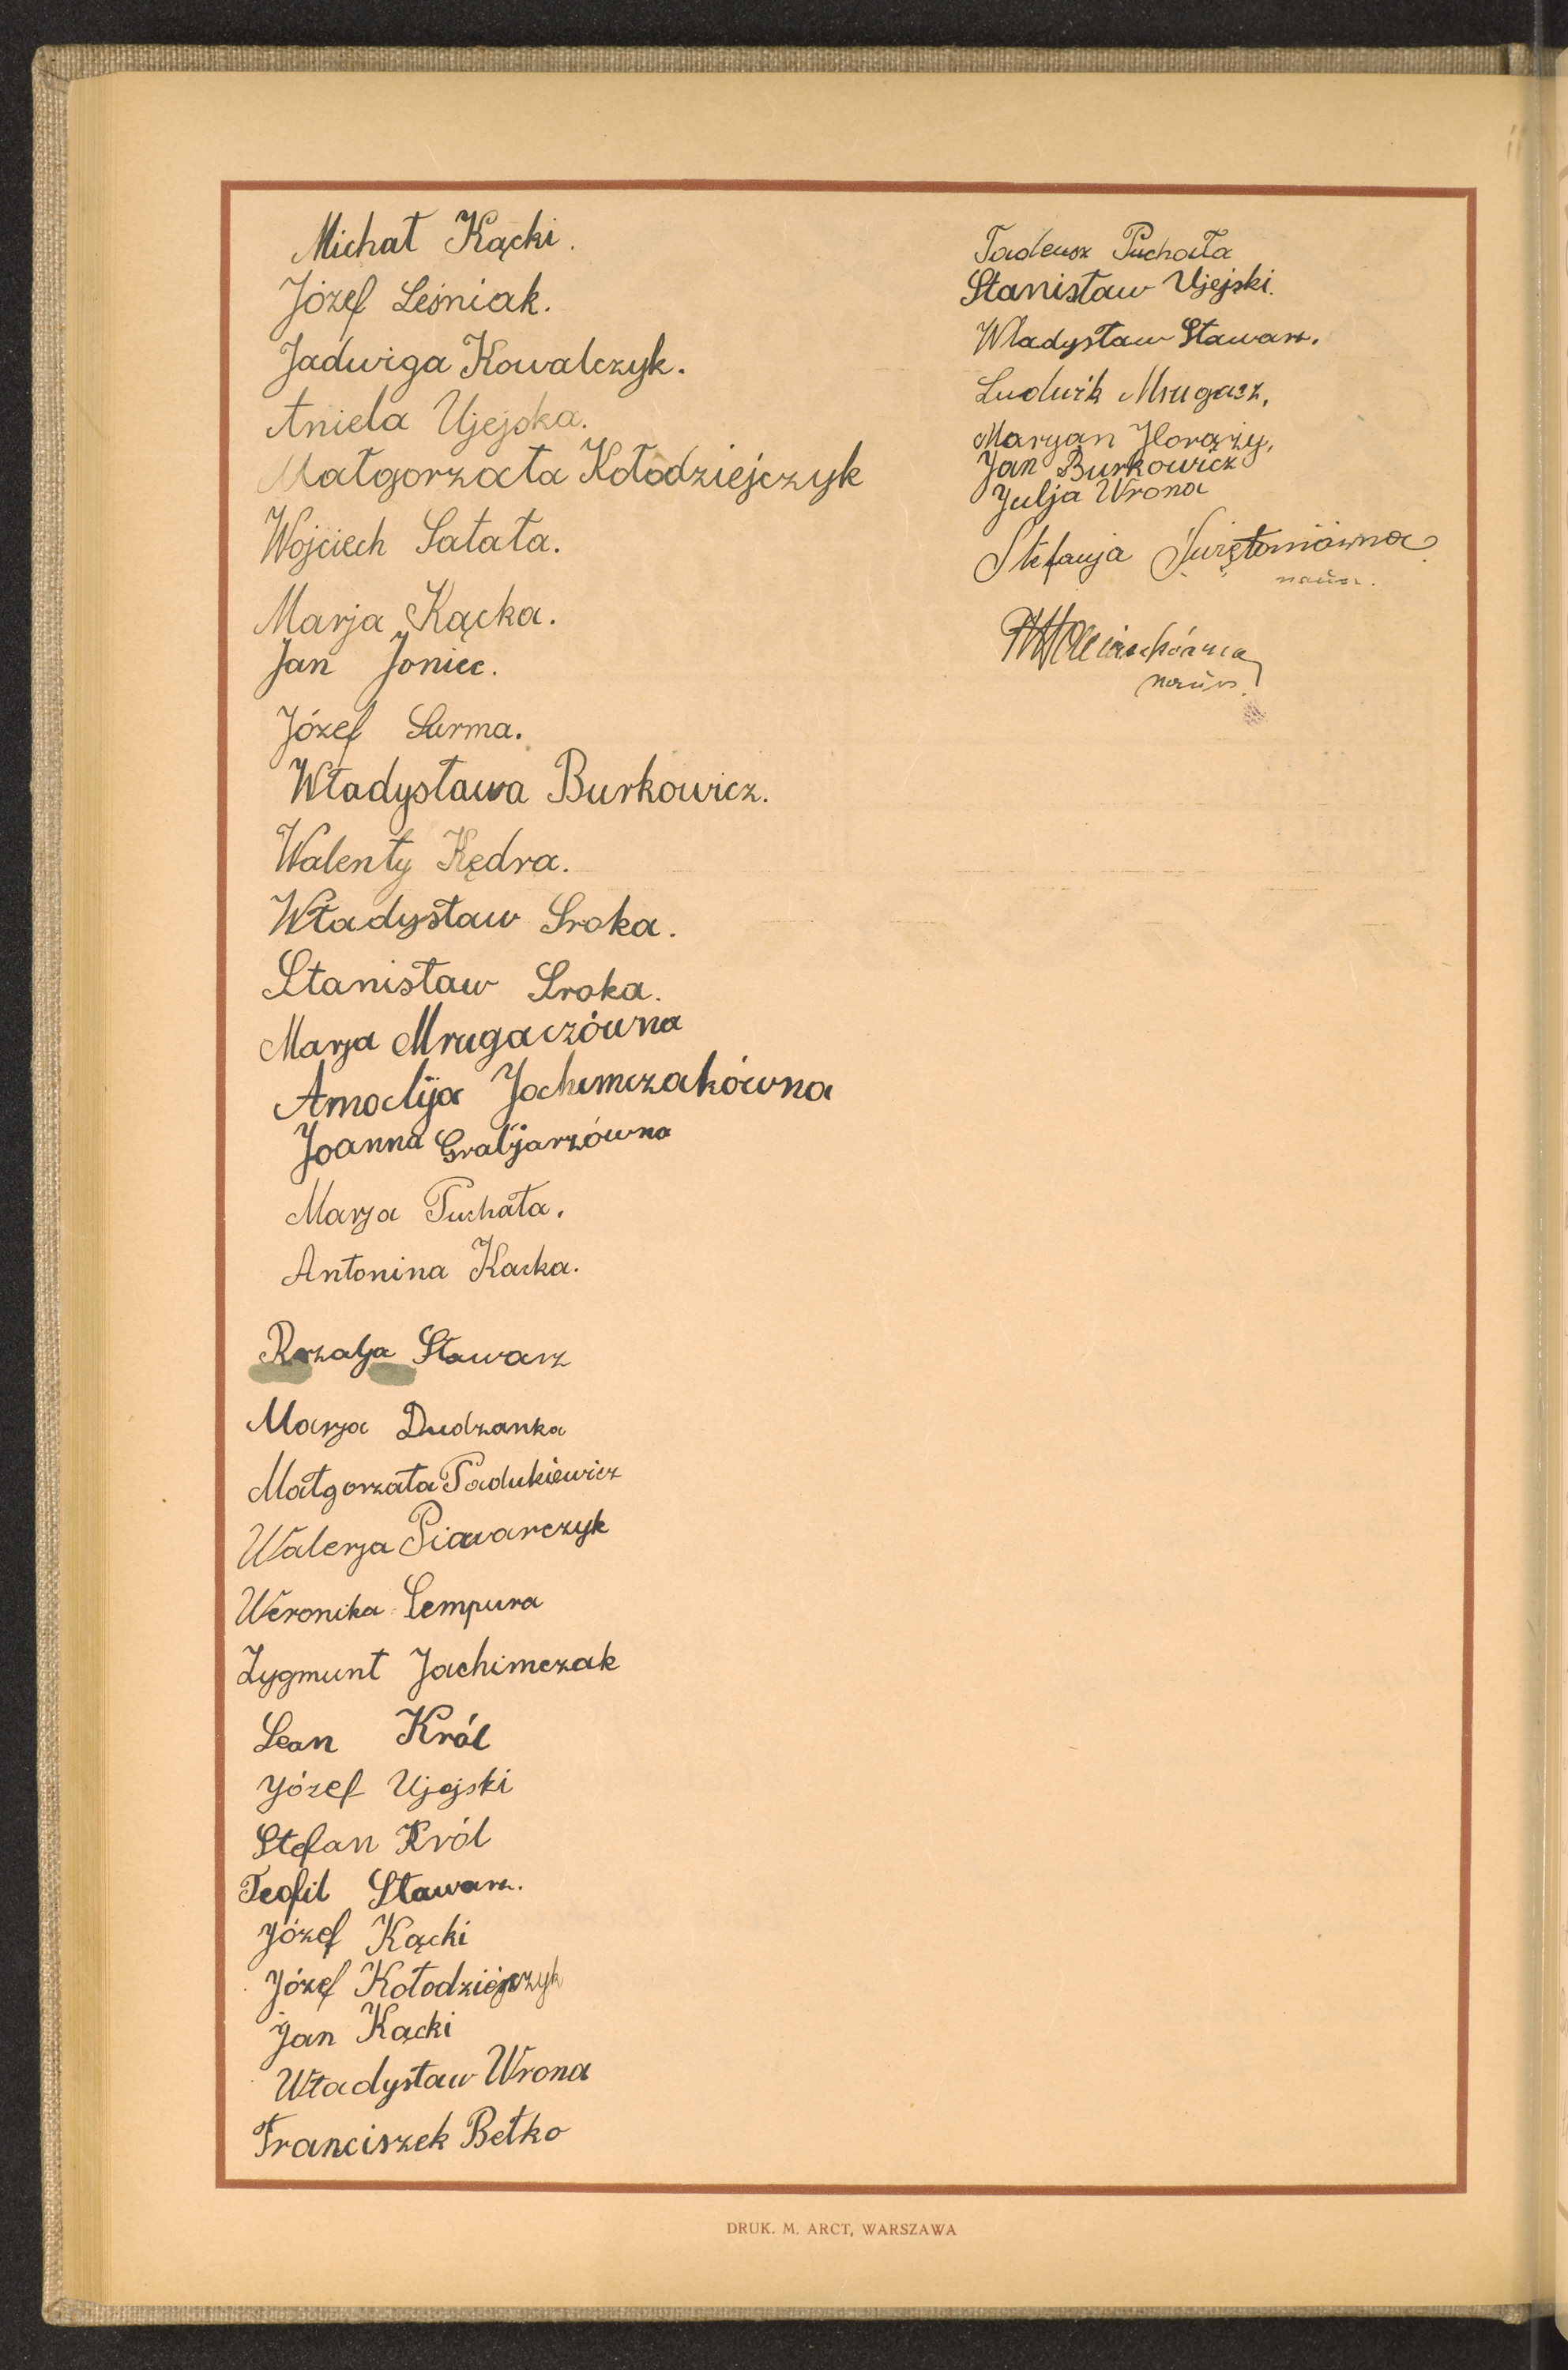 Michał Kącki.
Józef Leśniak.
Jadwiga Kowalczyk.
Aniela Ujejska.
Małgorzata Kołodziejczyk
Wojciech Sałata.
Marja Kącka.
Jan Joniec.
Józef Surma.
Władysława Burkowicz.
Walenty Kędra.
Władysław Sroka.
Stanisław Sroka.
Marja Mrugaczówna
Amalija Jachimczakówna
Joanna Graljarzówna
Marja Puchała.
Antonina Kacka.
Rozalja Stawarz
Marja Dudzanka
Małgorzata Padukiewicz
Walerja Piawarczyk
Weronika Sempura
Zygmunt Jachimczak
Lean Król
Józef Ujejski
Stefan Król
Teofil Stawarz.
Józef Kącki
Józef Kołodziejczyk
Jan Kącki
Władysław Wrona
Franciszek Betko
Tadeusz Puchała
Stanisław Ujejski.
Władysław Stawarz.
Ludwik Mrugacz,
Maryan Horąży,
Jan Burkowicz
Julja Wrona
Stefanja Świętoniówna
naucz.
naucz.
DRUK. M. ARCT, WARSZAWA